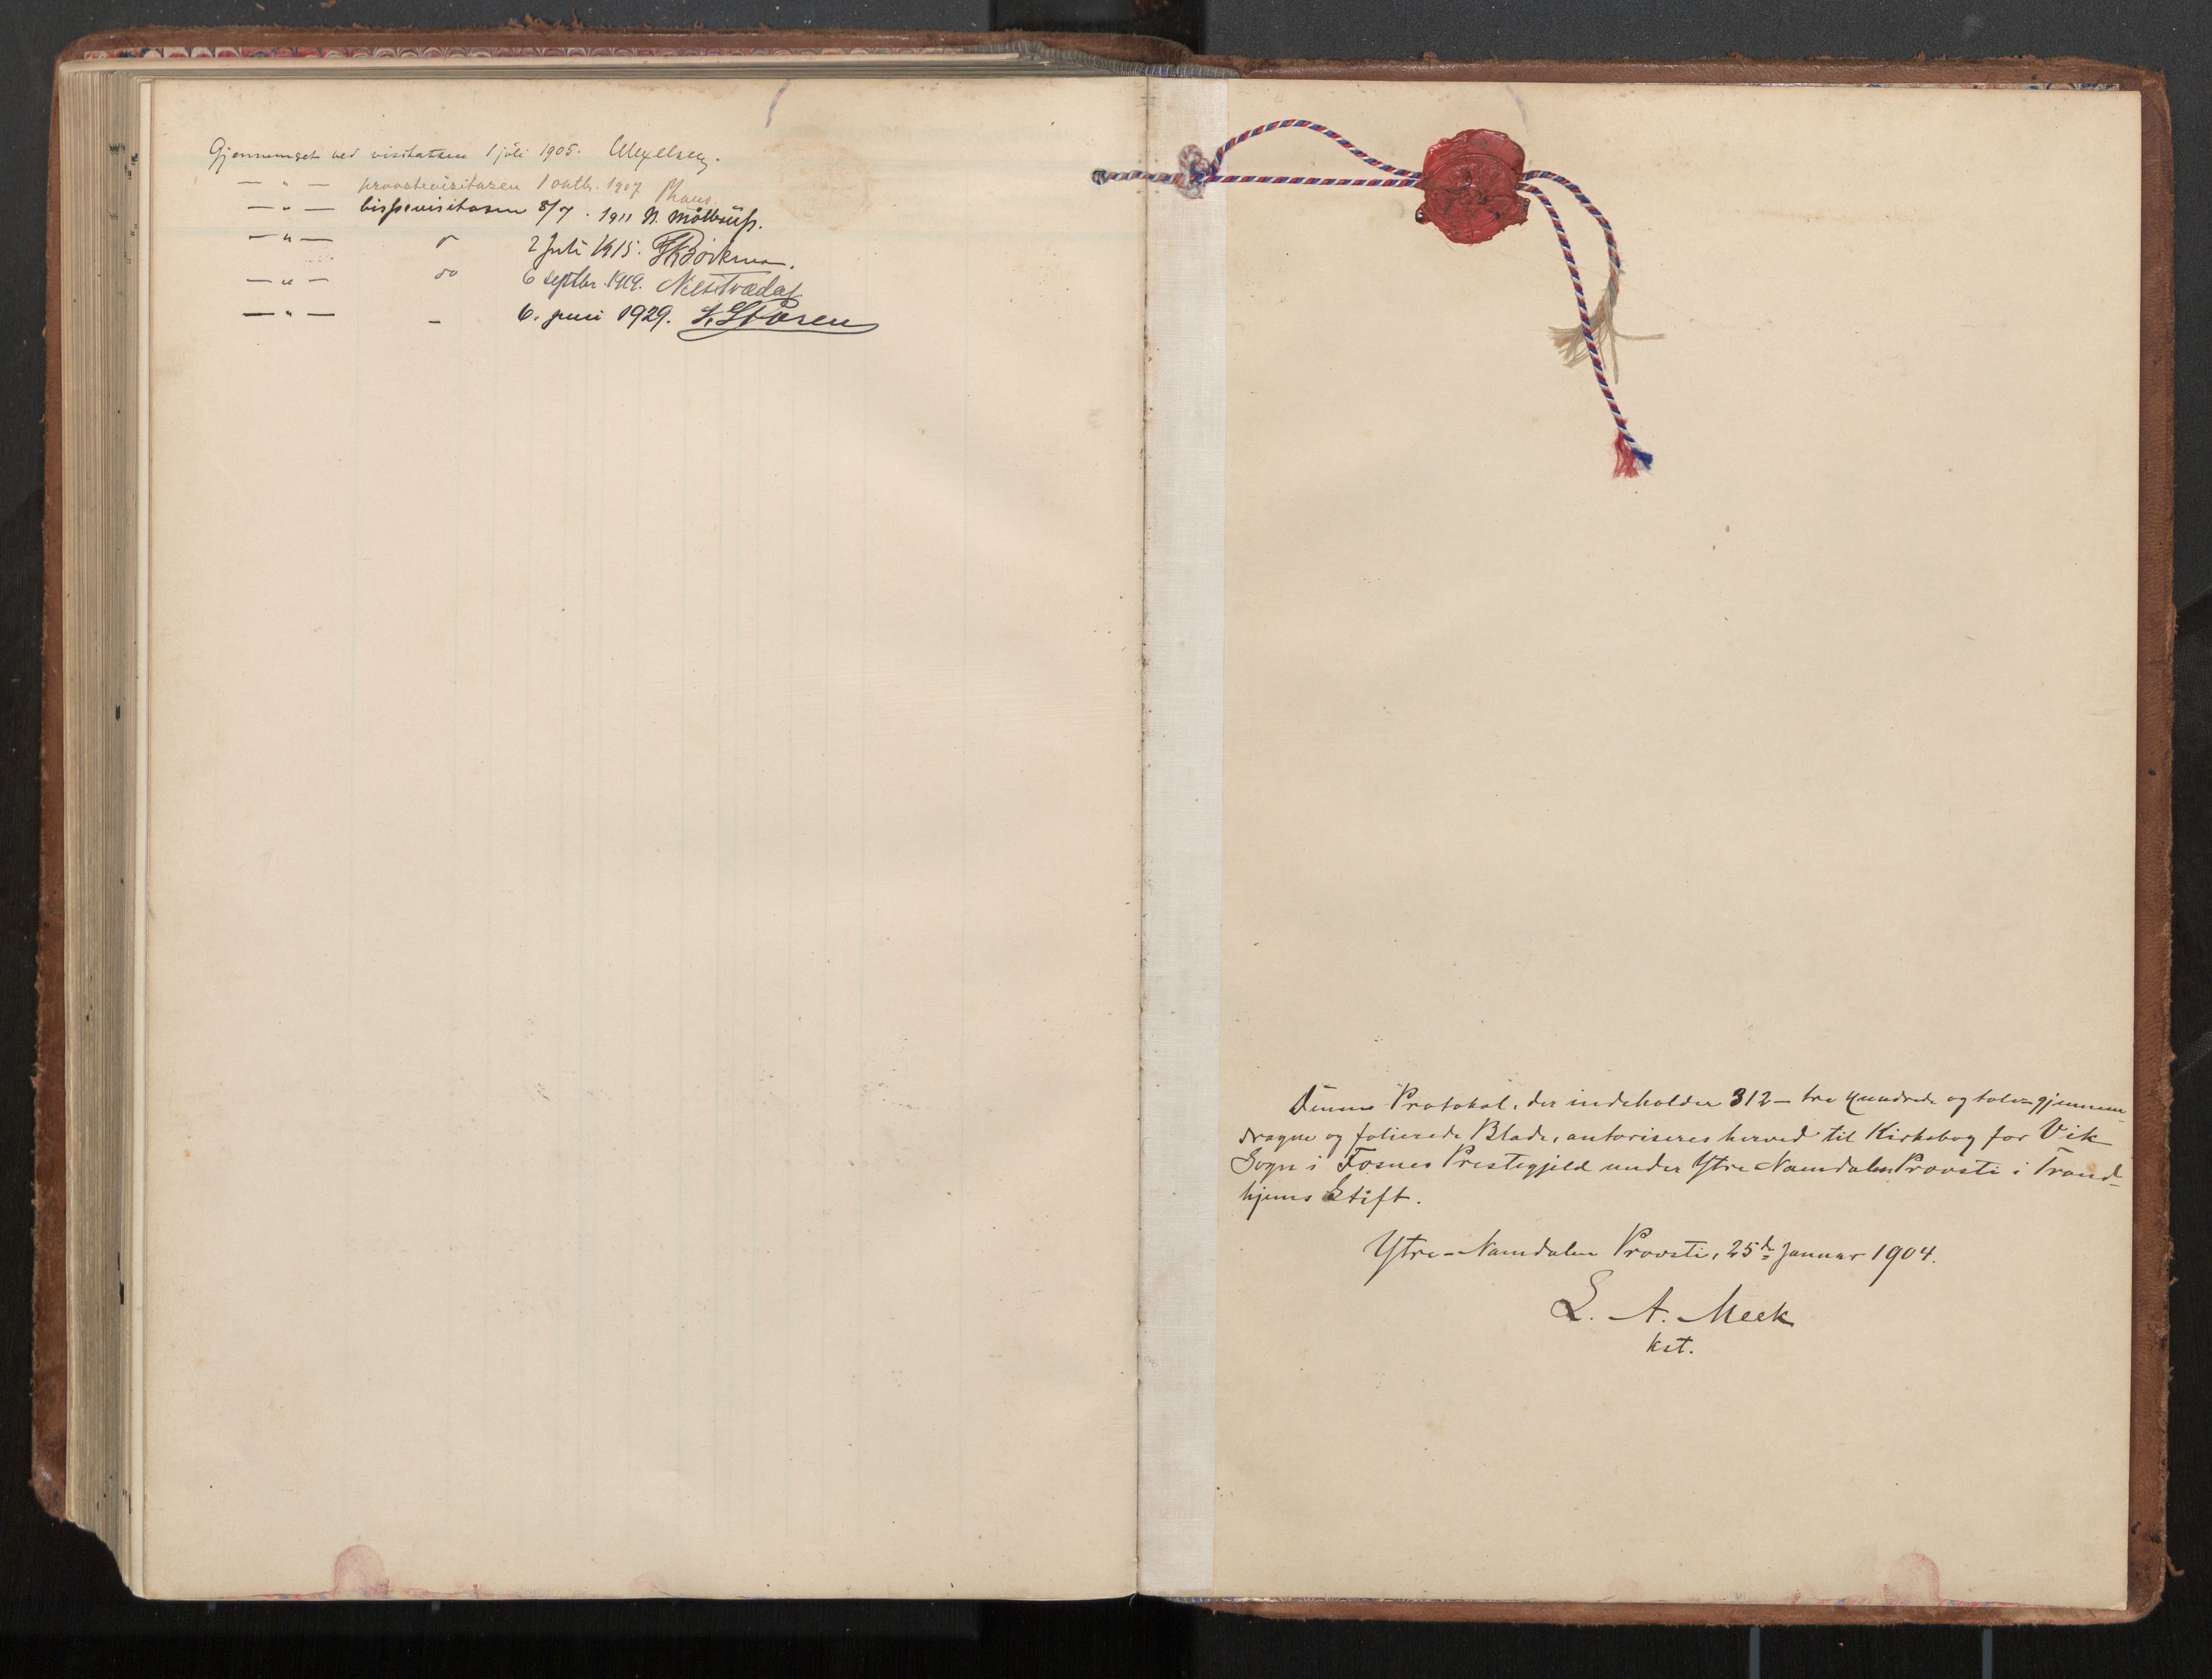 Gjennemset ved visitatsen 1 juli 1905. Wexelsen.
— " — proostevisitasen 1 oktb. 1907
— " — bispevisitasen 8/7 . 1911
— " — 2 Juli 1915. Bøckman.
— " — do 6 septbr. 1919.
— " — – 6. juni 1929. Støren
Denne Protokol, der indeholder 312 – tre Hundrede og tolv – gjennem-
dragne og folierede Blade, autoriseres herved til Kirkebog for Vik
Sogn i Fosnes Prestegjeld under Ytre Namdalen Provsti i Trond-
hjems Stift.
Ytre-Namdalen Provsti, 25de Januar 1904.
L. A. Meek
kst.